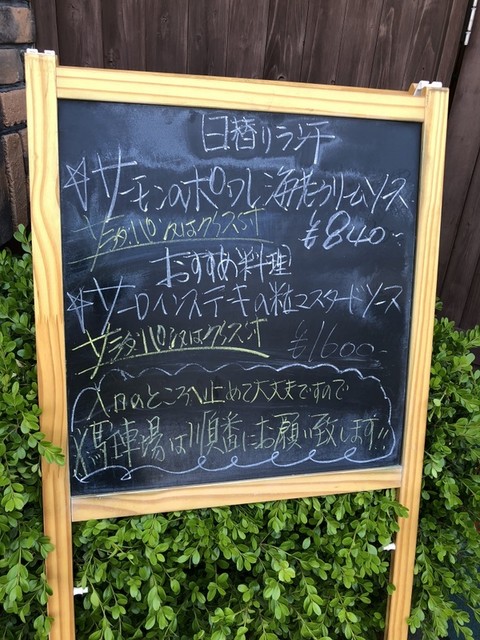 日替りランチ
☆サーモンのポワレ海老クリームソース
サラダ、パン又はライス付
¥840-
おすすめ料理
☆サーロインステーキの粒マスタードソース
サラダ、パン又はライス付
¥1600-
入口のところへ止めて大丈夫ですので
※駐車場は順番にお願い致します!!